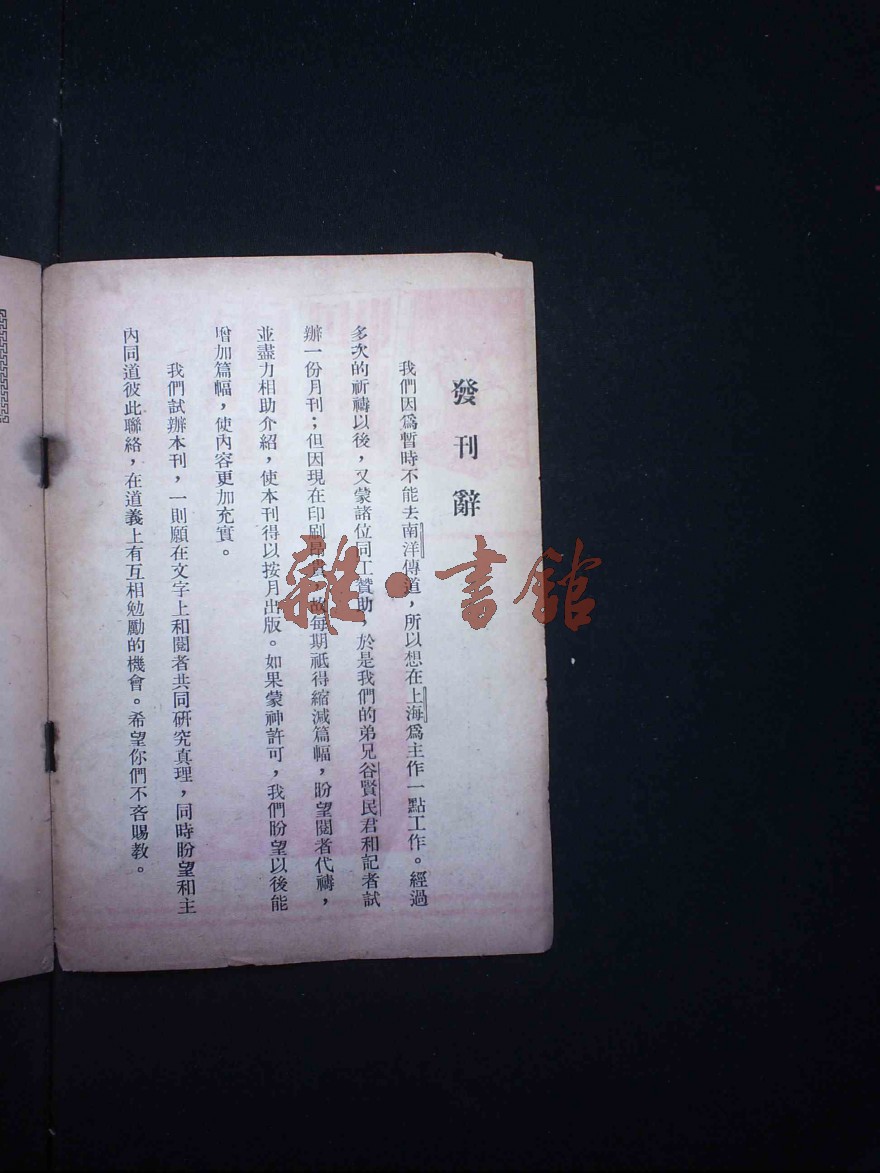 發刊辭
我們因爲暫時不能去南洋傳道，所以想在上海爲主作一點工作。經過
多次的祈禱以後，又蒙諸位同工贊助，於是我們的弟兄谷賢民君和記者試
辦一份月刊；但因現在印刷昂貴，故每期祇得縮減篇幅，盼望閱者代禱，
並盡力相助介紹，使本刊得以按月出版。如果蒙神許可，我們盼望以後能
增加篇幅，使內容更加充實。
我們試辦本刊，一則願在文字上和閱者共同研究真理，同時盼望和主
內同道彼此聯絡，在道義上有互相勉勵的機會。希望你們不吝賜教。
雜·書館